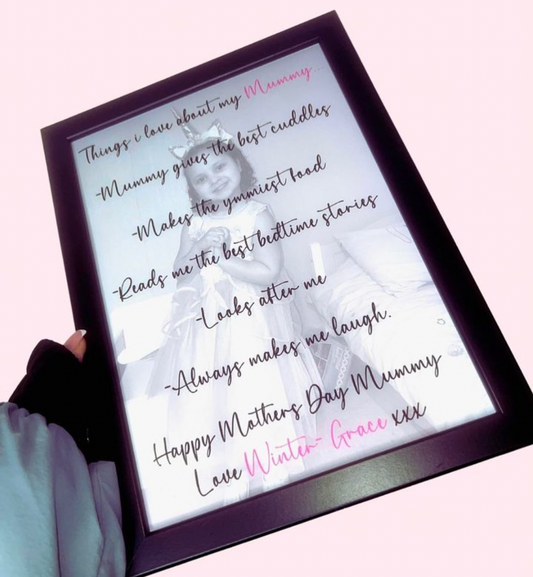 Things i love about my Mummy...
-Mummy gives the best cuddles
-Makes the ymmiest food
-Reads me the best bedtime stories
-Looks after me
-Always makes me laugh.
Happy Mothers Day Mummy
Love Winter-Grace xxx